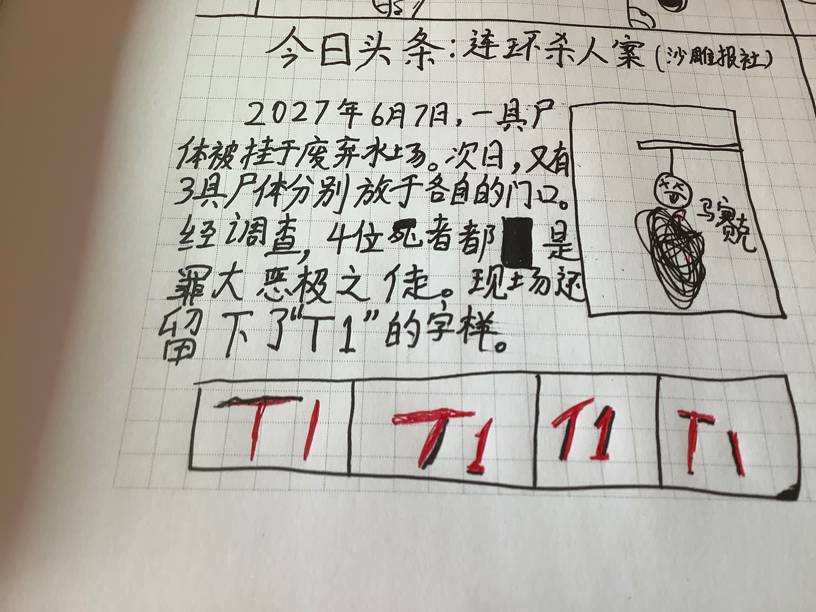 今日头条:连环杀人案(沙雕报社)
2027年6月7日,一具尸
体被挂于废弃水场。次日,又有
3具尸体分别放于各自的门口。
经调查,4位死者都是
罪大恶极之徒。现场还
留下了“T1”的字样。
马赛克
T1 T1 T1 T1